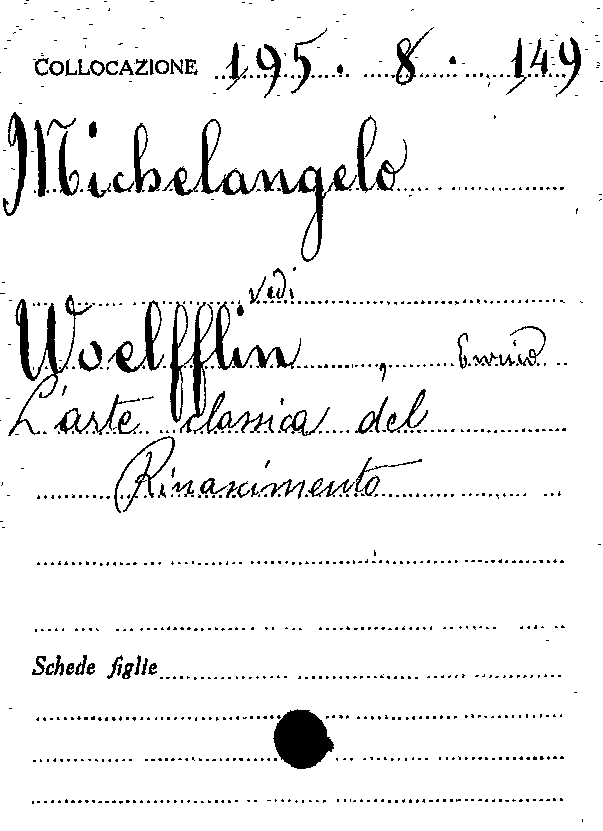 COLLOCAZIONE 195. 8. 149
Michelangelo
vedi
Woelfflin, Enrico
L'arte classica del
Rinascimento
Schede figlie